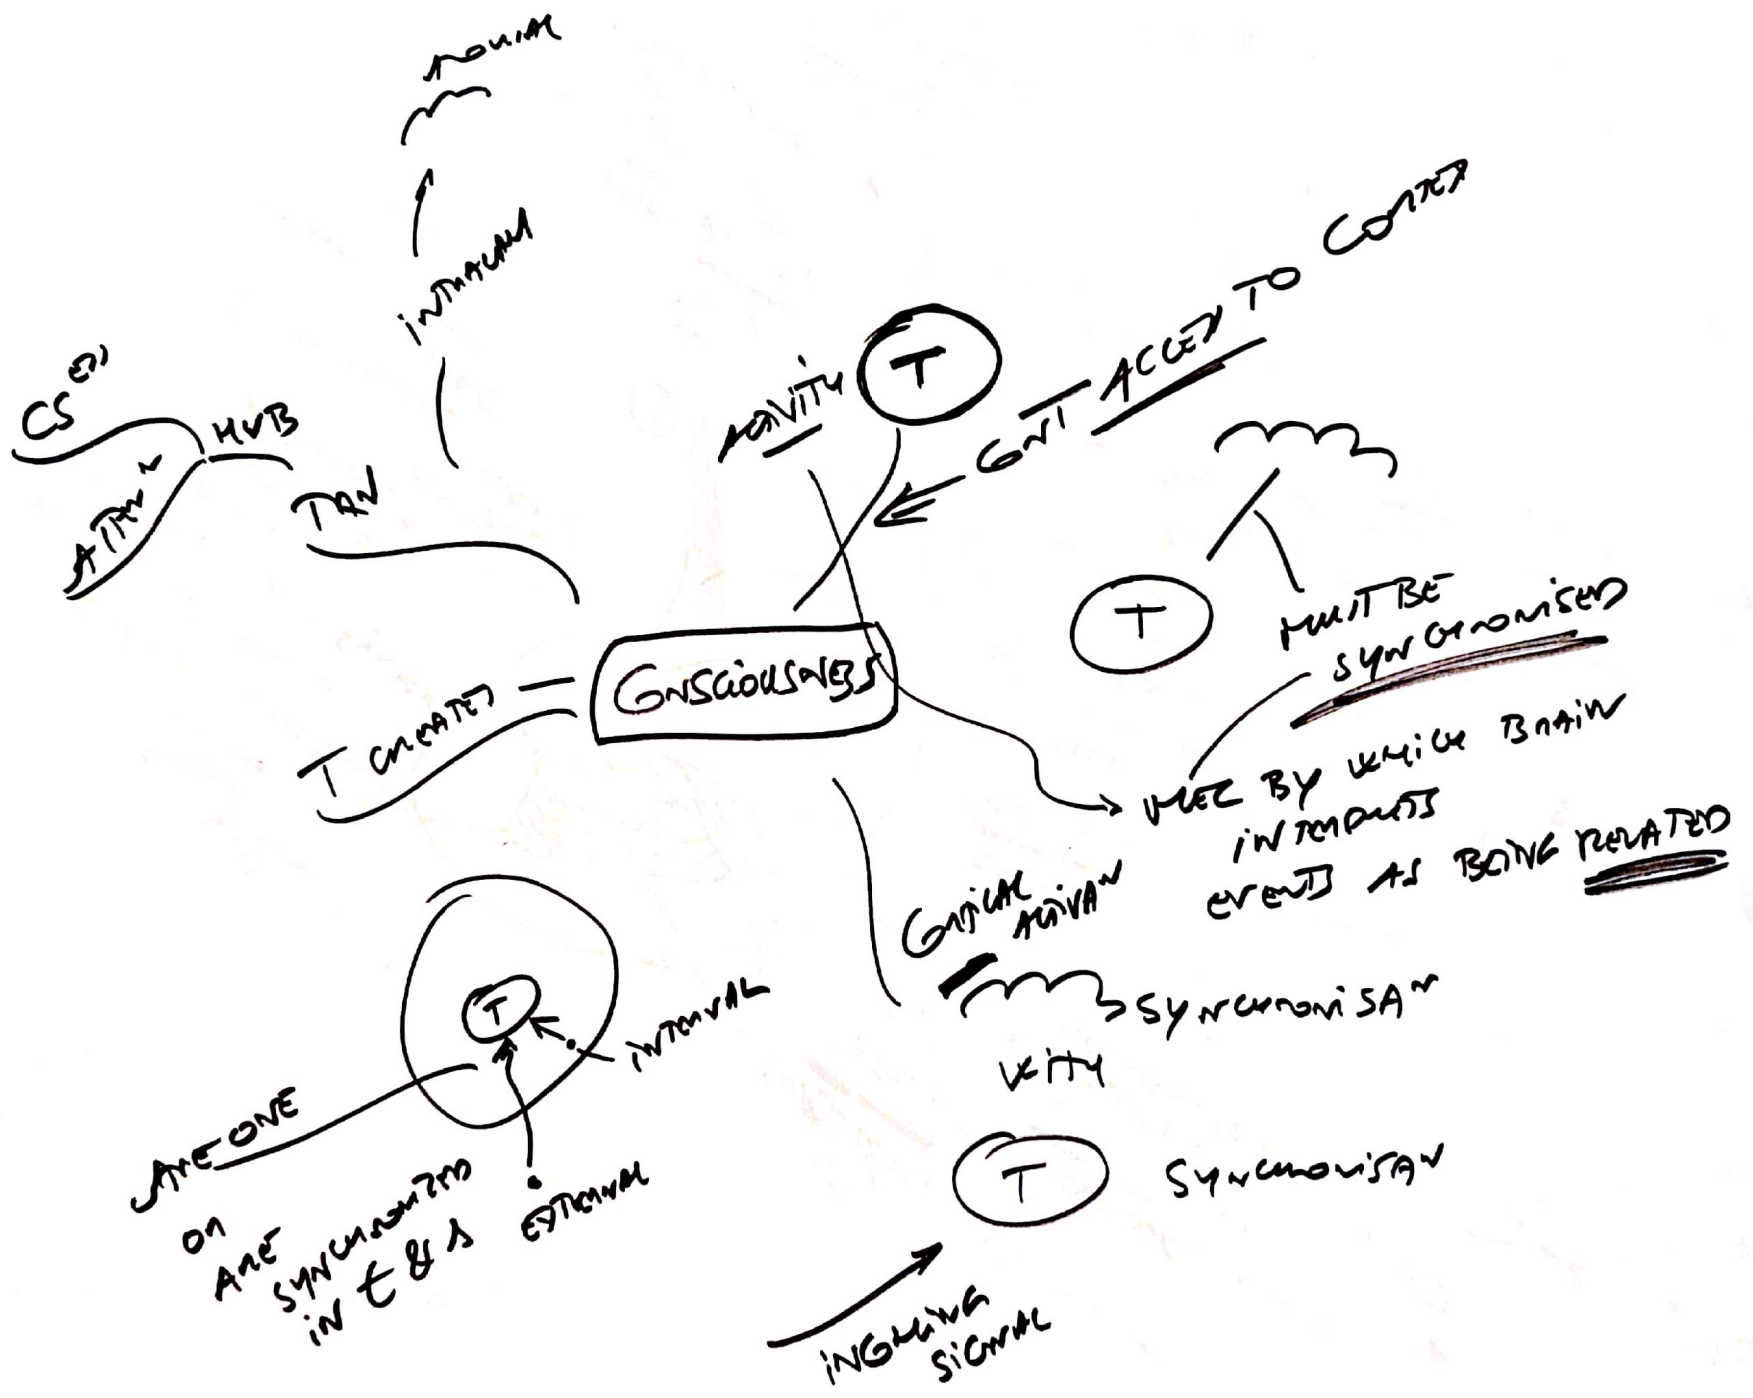 INTRALAM
CS ESS
HUB
ATTEN N
TAN
ACTIVITY
T
CONT ACCESS TO CORTEX
T
MUST BE
SYNCHRONISED
CONSCIOUSNESS
T CREATED
MEC BY WHICH BRAIN
INTERPRETS
EVENTS AS BEING RELATED
CORTICAL
ACTIVA N
SYNCHRONISA N
WITH
T
SYNCHRONISA N
INCOMING
SIGNAL
T
INTERNAL
EXTERNAL
ARE ONE
OR
ARE
SYNCHRONIZED
IN t & s